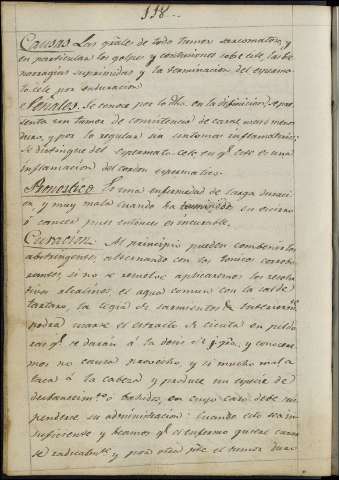 118..
Causas. Las grãles de todo tumor sarcomatoso, y
en particular los golpes y contusiones sobre este, las be-
norragias suprimidas y la terminacion del espermato-
tocele por induracion.
Señales. Se conoce por lo dho. en la definicion, se pre-
senta un tumor de consistencia de carne mas o menos
dura, y por lo regular sin sintomas inflamatorios:
Se distingue del espermato-cele en qe. este es una
inflamacion del cordon espermatico.
Pronostico. Es una enfermedad de larga duracion
y muy mala cuando ha en escirro
ó cancer pues entonces es incurable.
Curacion. Al principio pueden combenir los
abstringentes, alternando con los tonicos corrobo-
rantes, si no se resuelve aplicaremos los resolu-
tivos alcalinos, el agua comun con la sal de
tartaro, la legia de sarmientos &. Interiormte.
podrá usarse el estracto de cicuta en pildo-
ras qe. se darán á la dosis de y conoce-
mos no causa provecho, y si mucho mal a-
taca á la cabeza y produce una especie de
desbanecimto. bahidos, en cuyo caso debe sus-
penderse su administracion: Cuando esto no sea
suficiente y beamos qe. el enfermo quiere curar-
se radicalmte. y por otra pte. el tumor dura